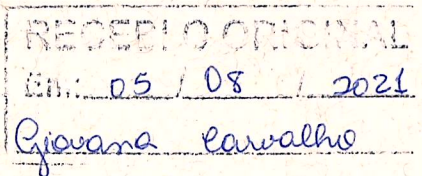 RECEBI O ORIGINAL
Em: 05 / 08 / 2021
Giovana Carvalho